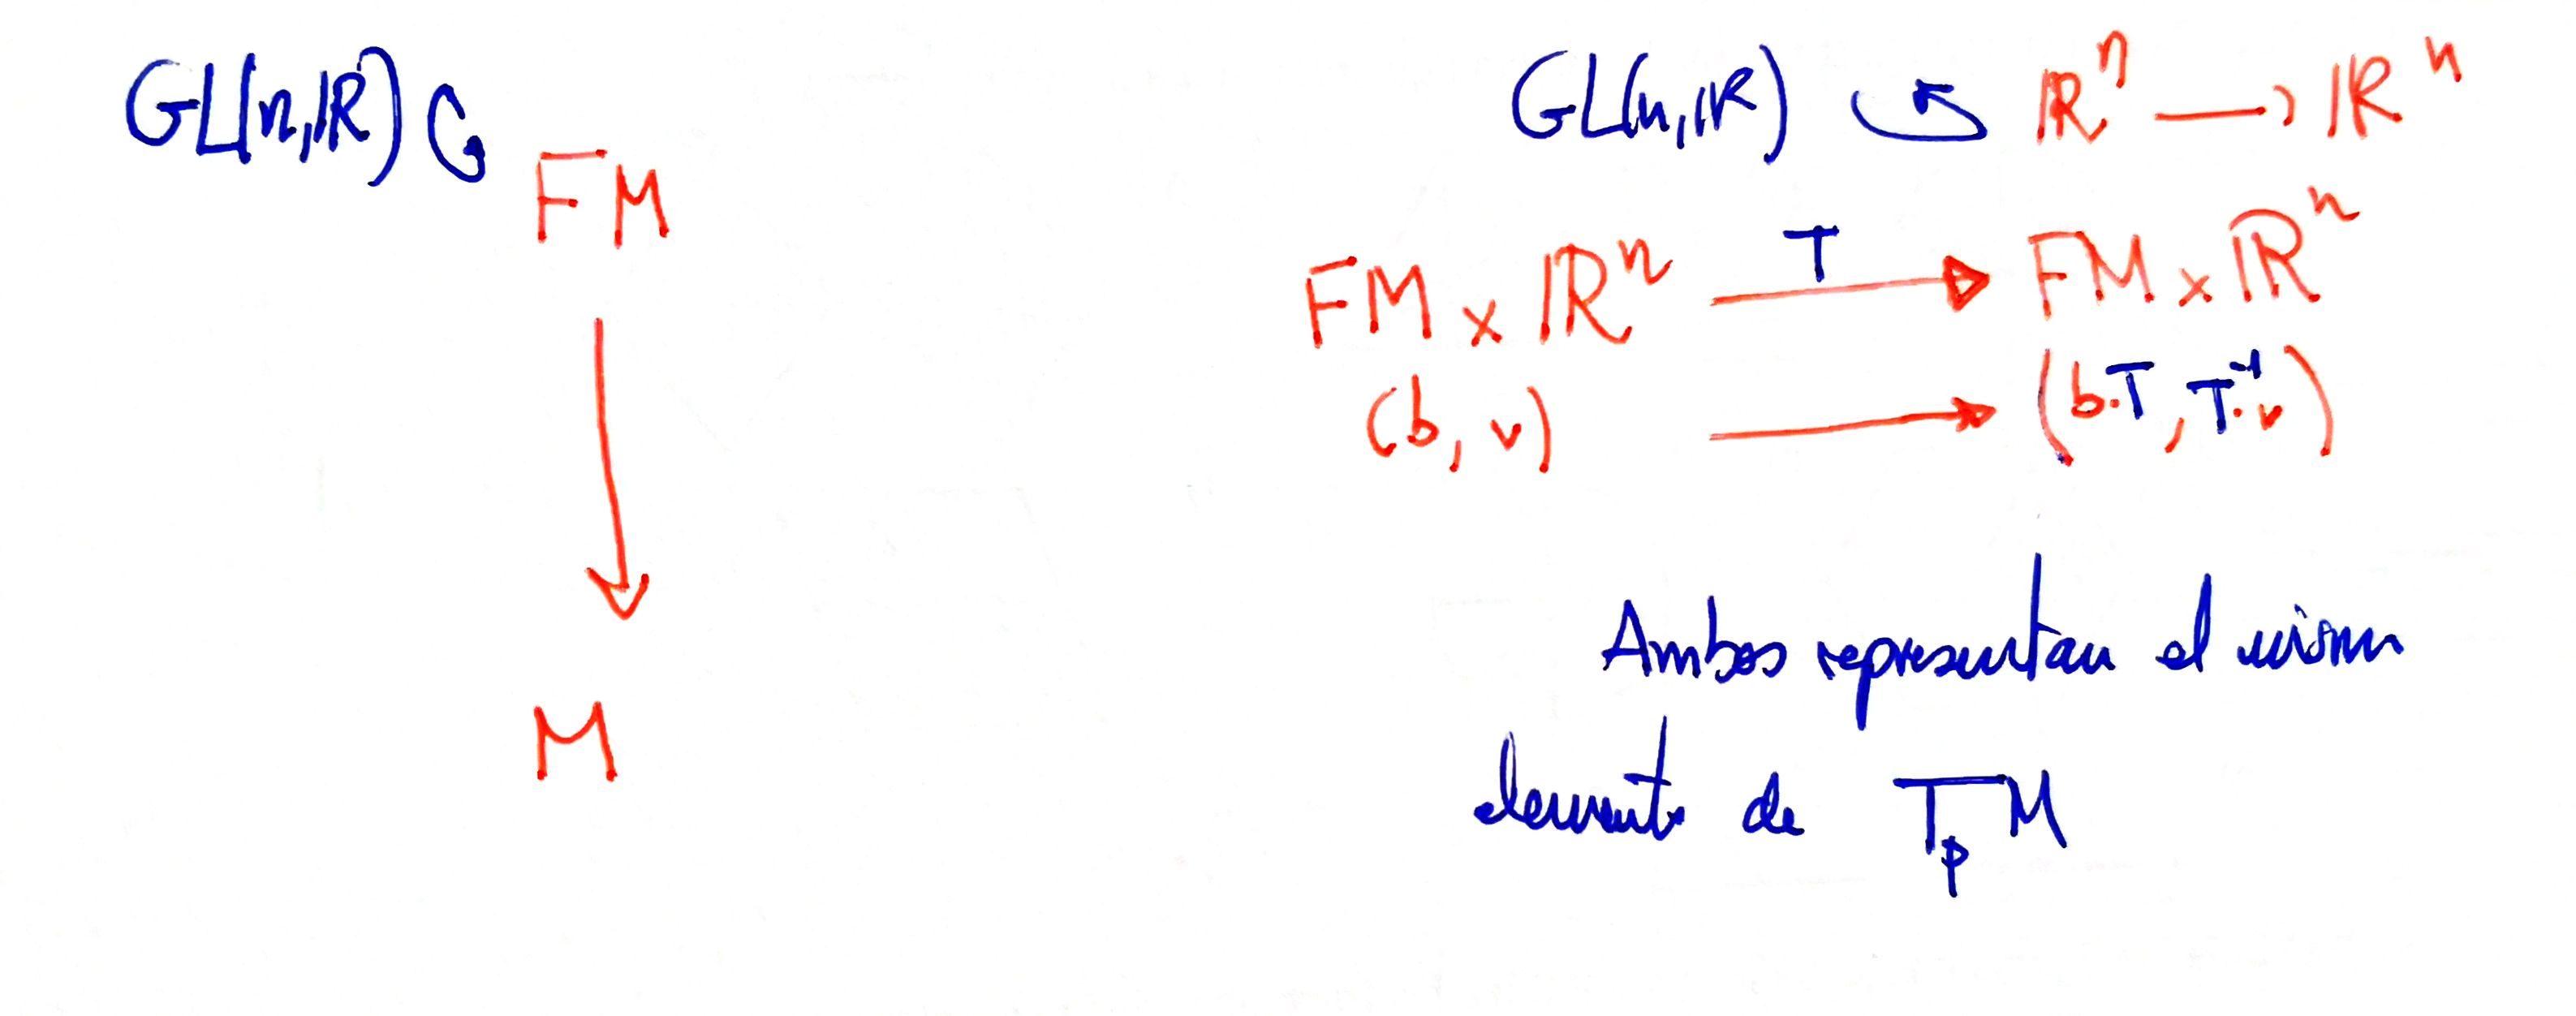 GL(n,ℝ)
FM
M
GL(n,ℝ) ↶ ℝⁿ → ℝⁿ
FM × ℝⁿ —T→ FM × ℝⁿ
(b, v) → (b·T, T⁻¹·v)
Ambos representan el mismo
elemento de TₚM